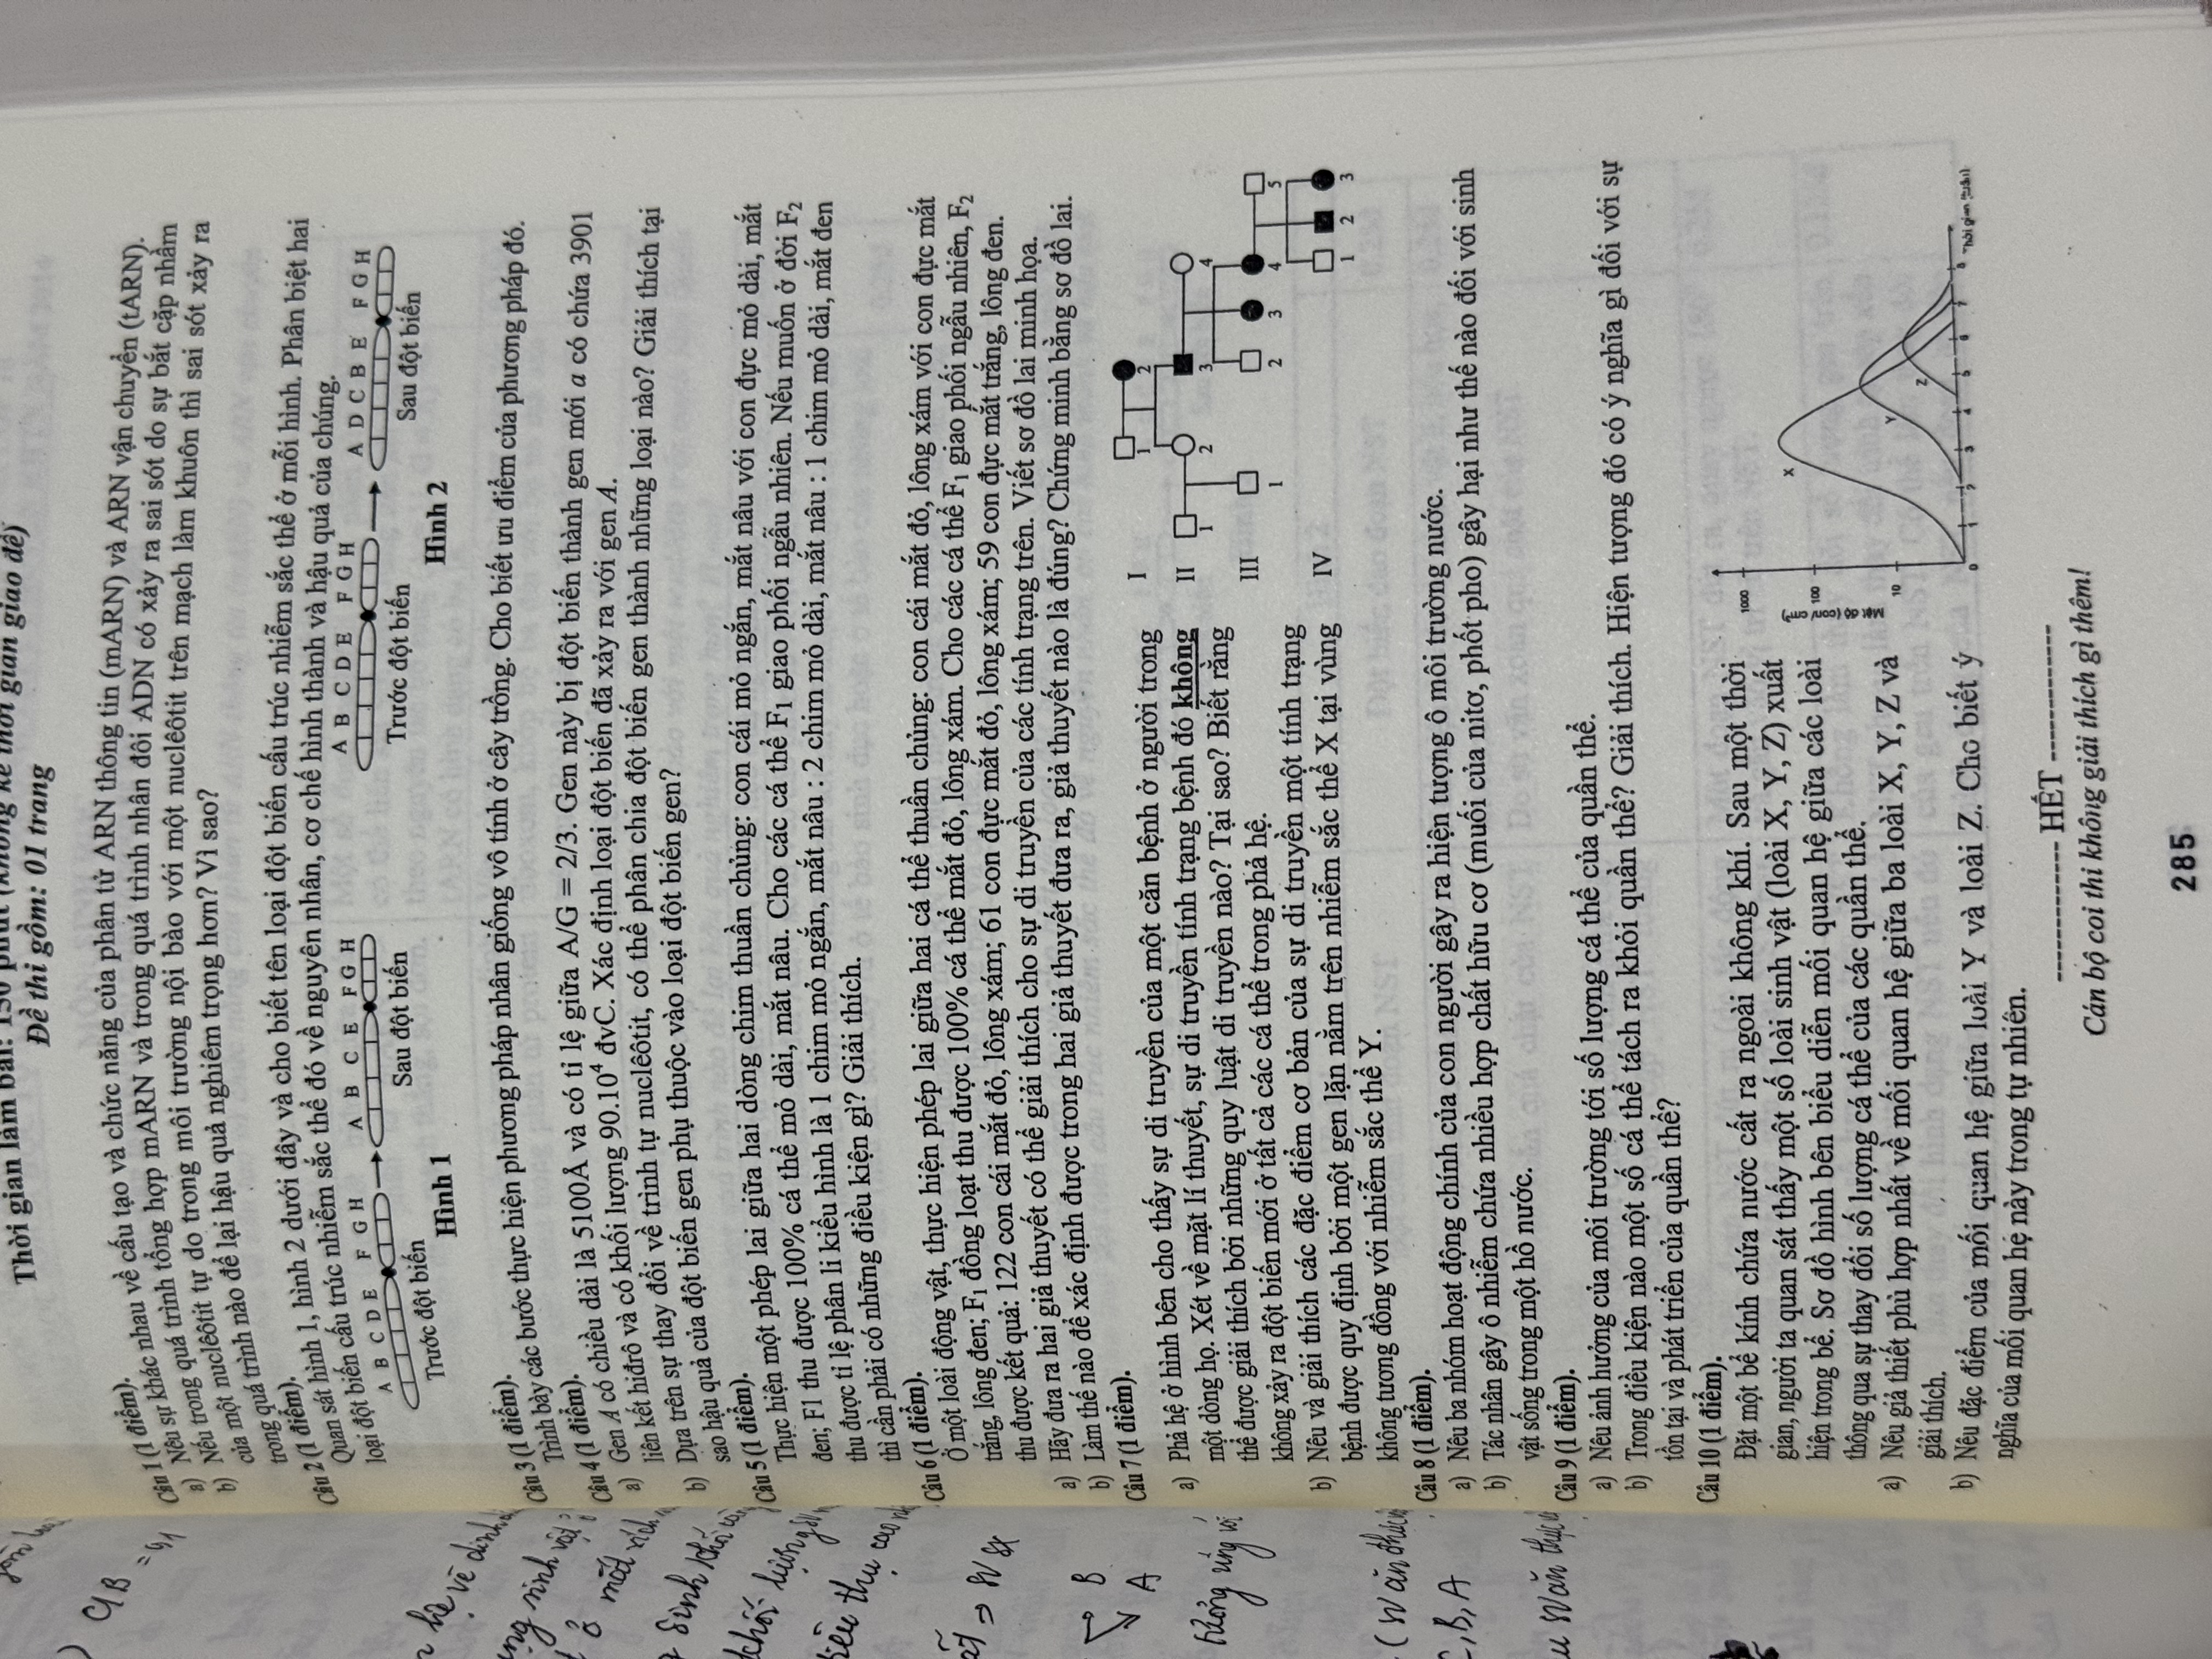 Thời gian làm bài: 150 phút (không kể thời gian giao đề)
Đề thi gồm: 01 trang
Câu 1 (1 điểm).
a) Nêu sự khác nhau về cấu tạo và chức năng của phân tử ARN thông tin (mARN) và ARN vận chuyển (tARN).
b) Nếu trong quá trình tổng hợp mARN và trong quá trình nhân đôi ADN có xảy ra sai sót do sự bắt cặp nhầm
của một nuclêôtit tự do trong môi trường nội bào với một nuclêôtit trên mạch làm khuôn thì sai sót xảy ra
trong quá trình nào để lại hậu quả nghiêm trọng hơn? Vì sao?
Câu 2 (1 điểm).
Quan sát hình 1, hình 2 dưới đây và cho biết tên loại đột biến cấu trúc nhiễm sắc thể ở mỗi hình. Phân biệt hai
loại đột biến cấu trúc nhiễm sắc thể đó về nguyên nhân, cơ chế hình thành và hậu quả của chúng.
A B C D E F G H
A B C E F G H
A B C D E F G H
A D C B E F G H
Trước đột biến
Sau đột biến
Trước đột biến
Sau đột biến
Hình 1
Hình 2
Câu 3 (1 điểm).
Trình bày các bước thực hiện phương pháp nhân giống vô tính ở cây trồng. Cho biết ưu điểm của phương pháp đó.
Câu 4 (1 điểm).
a) Gen A có chiều dài là 5100Å và có tỉ lệ giữa A/G = 2/3. Gen này bị đột biến thành gen mới a có chứa 3901
liên kết hiđrô và có khối lượng 90.10⁴ đvC. Xác định loại đột biến đã xảy ra với gen A.
b) Dựa trên sự thay đổi về trình tự nuclêôtit, có thể phân chia đột biến gen thành những loại nào? Giải thích tại
sao hậu quả của đột biến gen phụ thuộc vào loại đột biến gen?
Câu 5 (1 điểm).
Thực hiện một phép lai giữa hai dòng chim thuần chủng: con cái mỏ ngắn, mắt nâu với con đực mỏ dài, mắt
đen; F1 thu được 100% cá thể mỏ dài, mắt nâu. Cho các cá thể F₁ giao phối ngẫu nhiên. Nếu muốn ở đời F₂
thu được tỉ lệ phân li kiểu hình là 1 chim mỏ ngắn, mắt nâu : 2 chim mỏ dài, mắt nâu : 1 chim mỏ dài, mắt đen
thì cần phải có những điều kiện gì? Giải thích.
Câu 6 (1 điểm).
Ở một loài động vật, thực hiện phép lai giữa hai cá thể thuần chủng: con cái mắt đỏ, lông xám với con đực mắt
trắng, lông đen; F₁ đồng loạt thu được 100% cá thể mắt đỏ, lông xám. Cho các cá thể F₁ giao phối ngẫu nhiên, F₂
thu được kết quả: 122 con cái mắt đỏ, lông xám; 61 con đực mắt đỏ, lông xám; 59 con đực mắt trắng, lông đen.
a) Hãy đưa ra hai giả thuyết có thể giải thích cho sự di truyền của các tính trạng trên. Viết sơ đồ lai minh họa.
b) Làm thế nào để xác định được trong hai giả thuyết đưa ra, giả thuyết nào là đúng? Chứng minh bằng sơ đồ lai.
Câu 7 (1 điểm).
a) Phả hệ ở hình bên cho thấy sự di truyền của một căn bệnh ở người trong
một dòng họ. Xét về mặt lí thuyết, sự di truyền tính trạng bệnh đó không
thể được giải thích bởi những quy luật di truyền nào? Tại sao? Biết rằng
không xảy ra đột biến mới ở tất cả các cá thể trong phả hệ.
b) Nêu và giải thích các đặc điểm cơ bản của sự di truyền một tính trạng
bệnh được quy định bởi một gen lặn nằm trên nhiễm sắc thể X tại vùng
không tương đồng với nhiễm sắc thể Y.
I
1 2
II
1 2 3 4
III
1 2 3 4 5
IV
1 2 3
Câu 8 (1 điểm).
a) Nêu ba nhóm hoạt động chính của con người gây ra hiện tượng ô nhiễm môi trường nước.
b) Tác nhân gây ô nhiễm chứa nhiều hợp chất hữu cơ (muối của nitơ, phốt pho) gây hại như thế nào đối với sinh
vật sống trong một hồ nước.
Câu 9 (1 điểm).
a) Nêu ảnh hưởng của môi trường tới số lượng cá thể của quần thể.
b) Trong điều kiện nào một số cá thể tách ra khỏi quần thể? Giải thích. Hiện tượng đó có ý nghĩa gì đối với sự
tồn tại và phát triển của quần thể?
Câu 10 (1 điểm).
Đặt một bể kính chứa nước cất ra ngoài không khí. Sau một thời
gian, người ta quan sát thấy một số loài sinh vật (loài X, Y, Z) xuất
hiện trong bể. Sơ đồ hình bên biểu diễn mối quan hệ giữa các loài
thông qua sự thay đổi số lượng cá thể của các quần thể.
a) Nêu giả thiết phù hợp nhất về mối quan hệ giữa ba loài X, Y, Z và
giải thích.
b) Nêu đặc điểm của mối quan hệ giữa loài Y và loài Z. Cho biết ý
nghĩa của mối quan hệ này trong tự nhiên.
1000
100
10
X
Y
Z
0 1 2 3 4 5 6 7 8
Thời gian (tuần)
------------ HẾT ------------
Cán bộ coi thi không giải thích gì thêm!
285